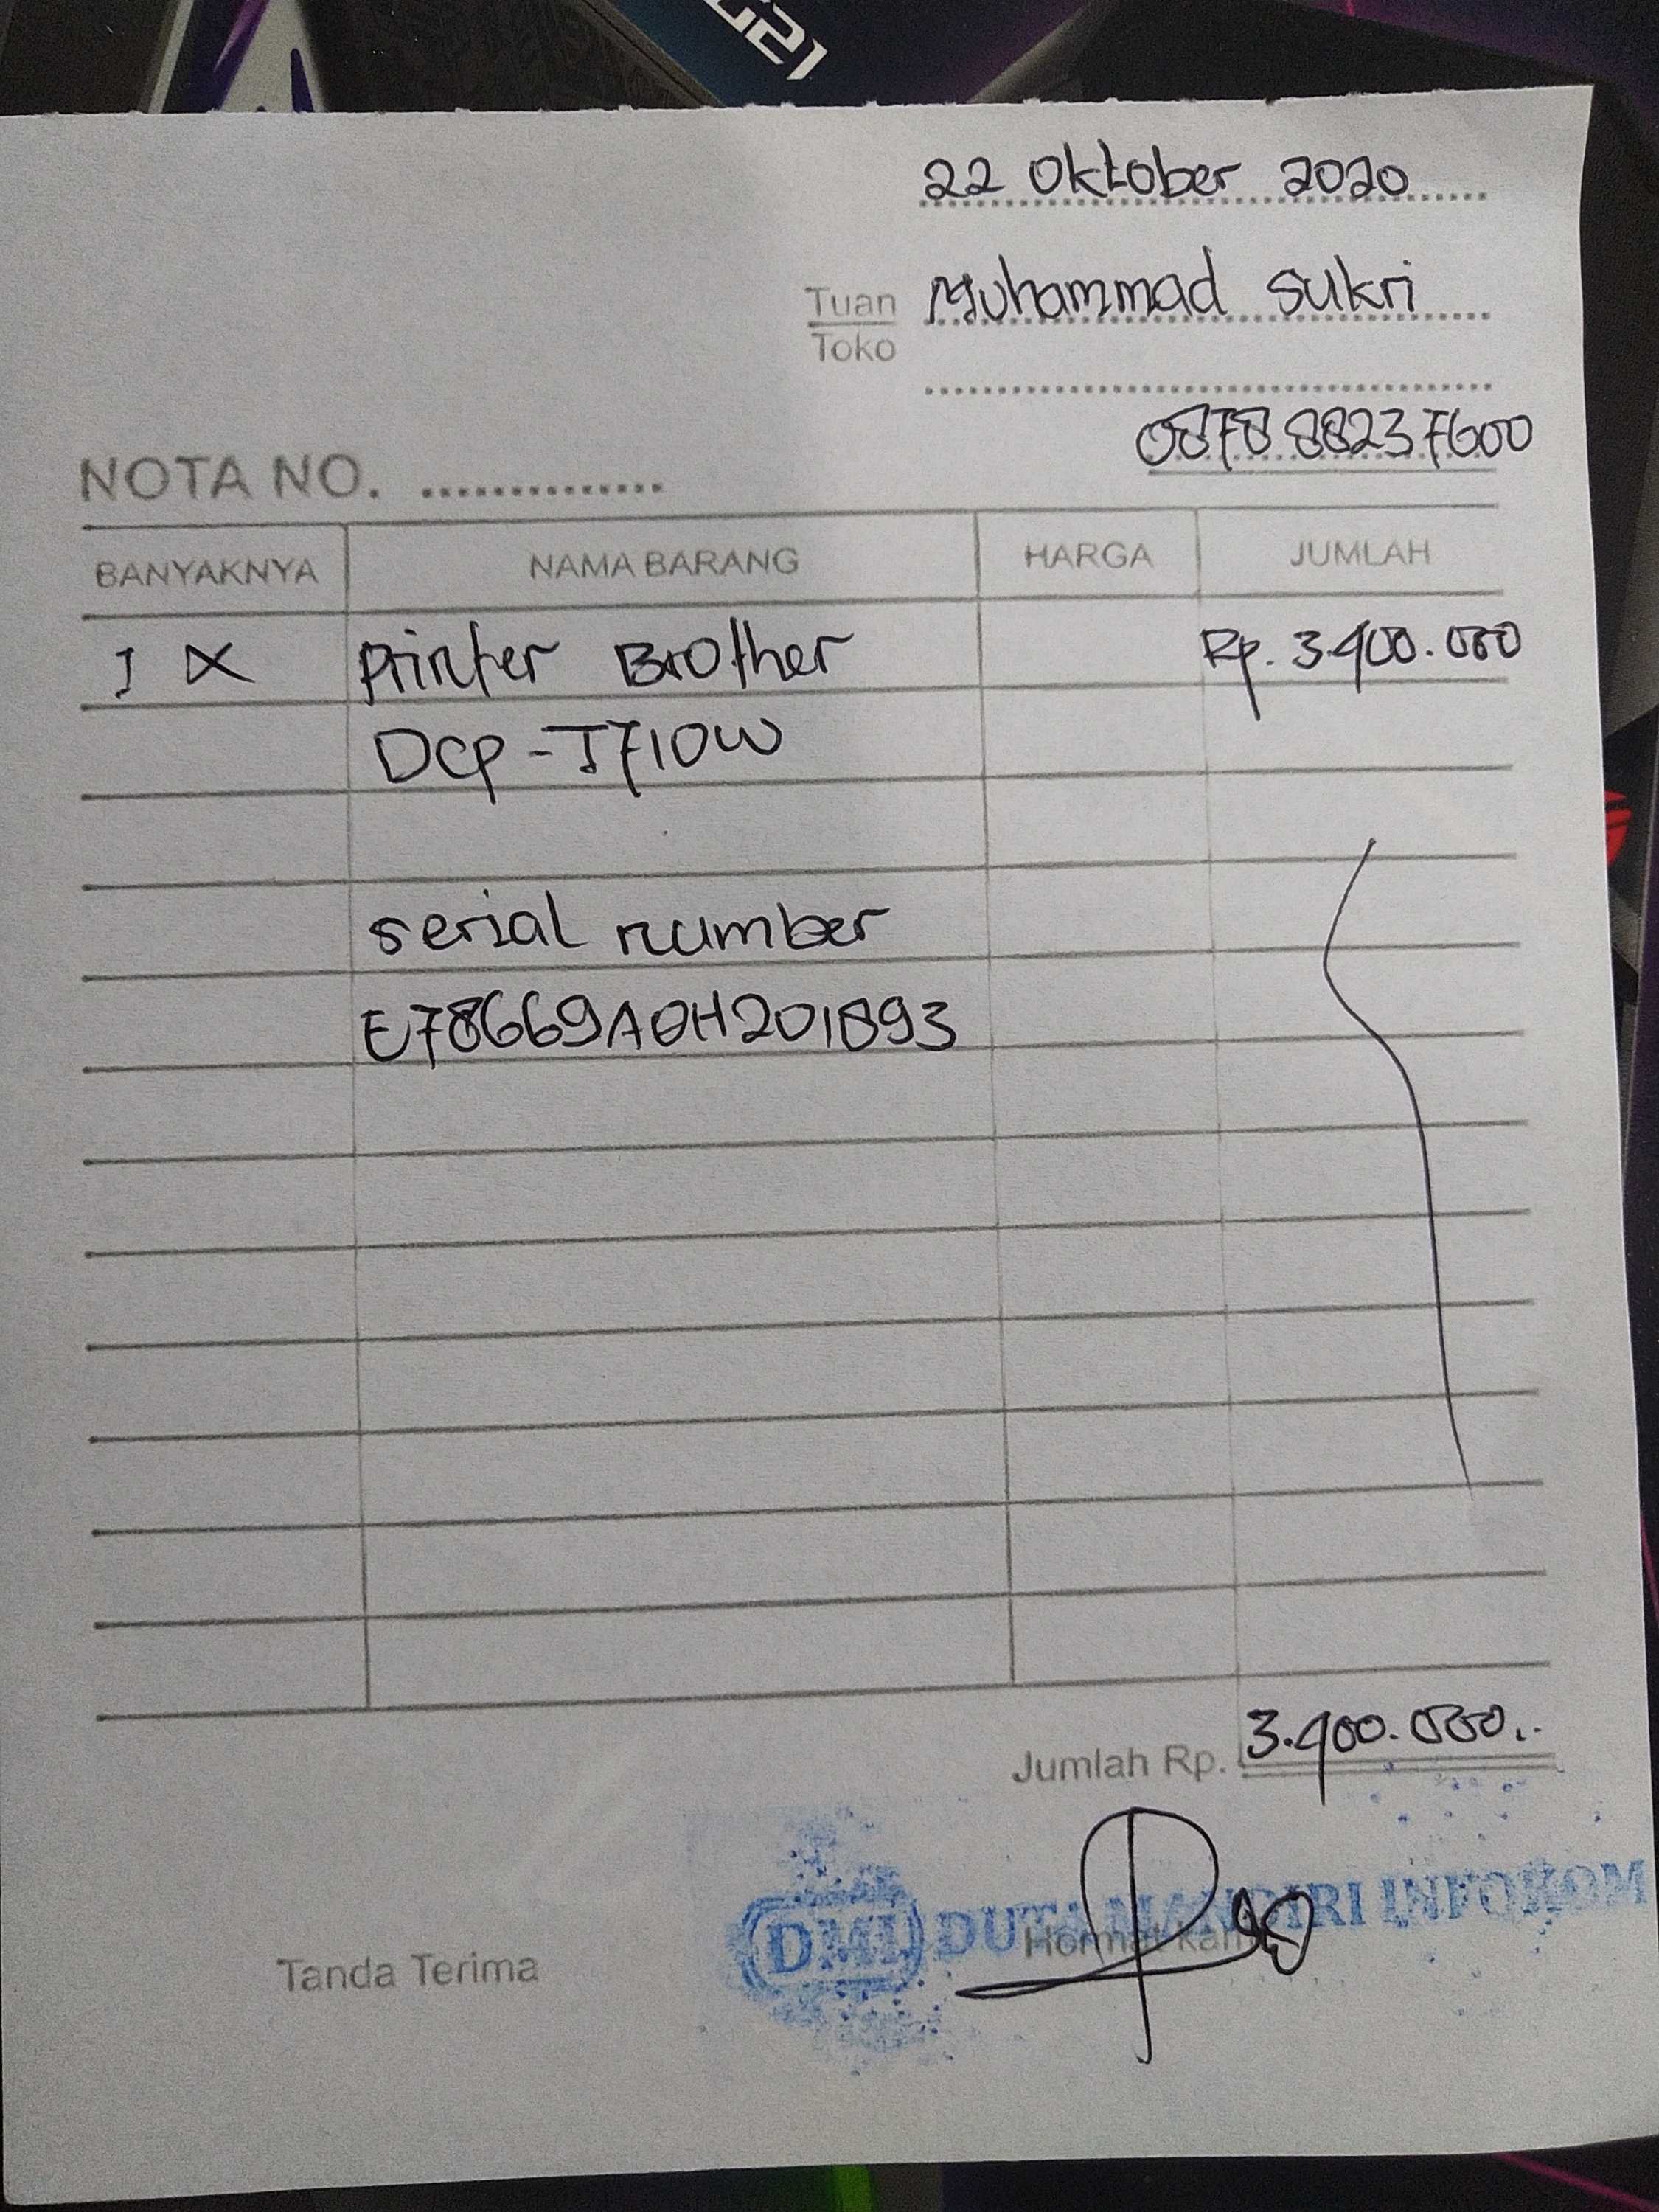 G21
22 Oktober 2020
Tuan Muhammad Sukri
Toko
0878 88237600
NOTA NO. ..............
BANYAKNYA NAMA BARANG HARGA JUMLAH
1 X Printer Brother Rp. 3.400.000
DCP-T710W
serial number
E78669A0H201893
Jumlah Rp. 3.400.000..
DMI DUTA MANDIRI INFOKOM
Tanda Terima Hormat kami